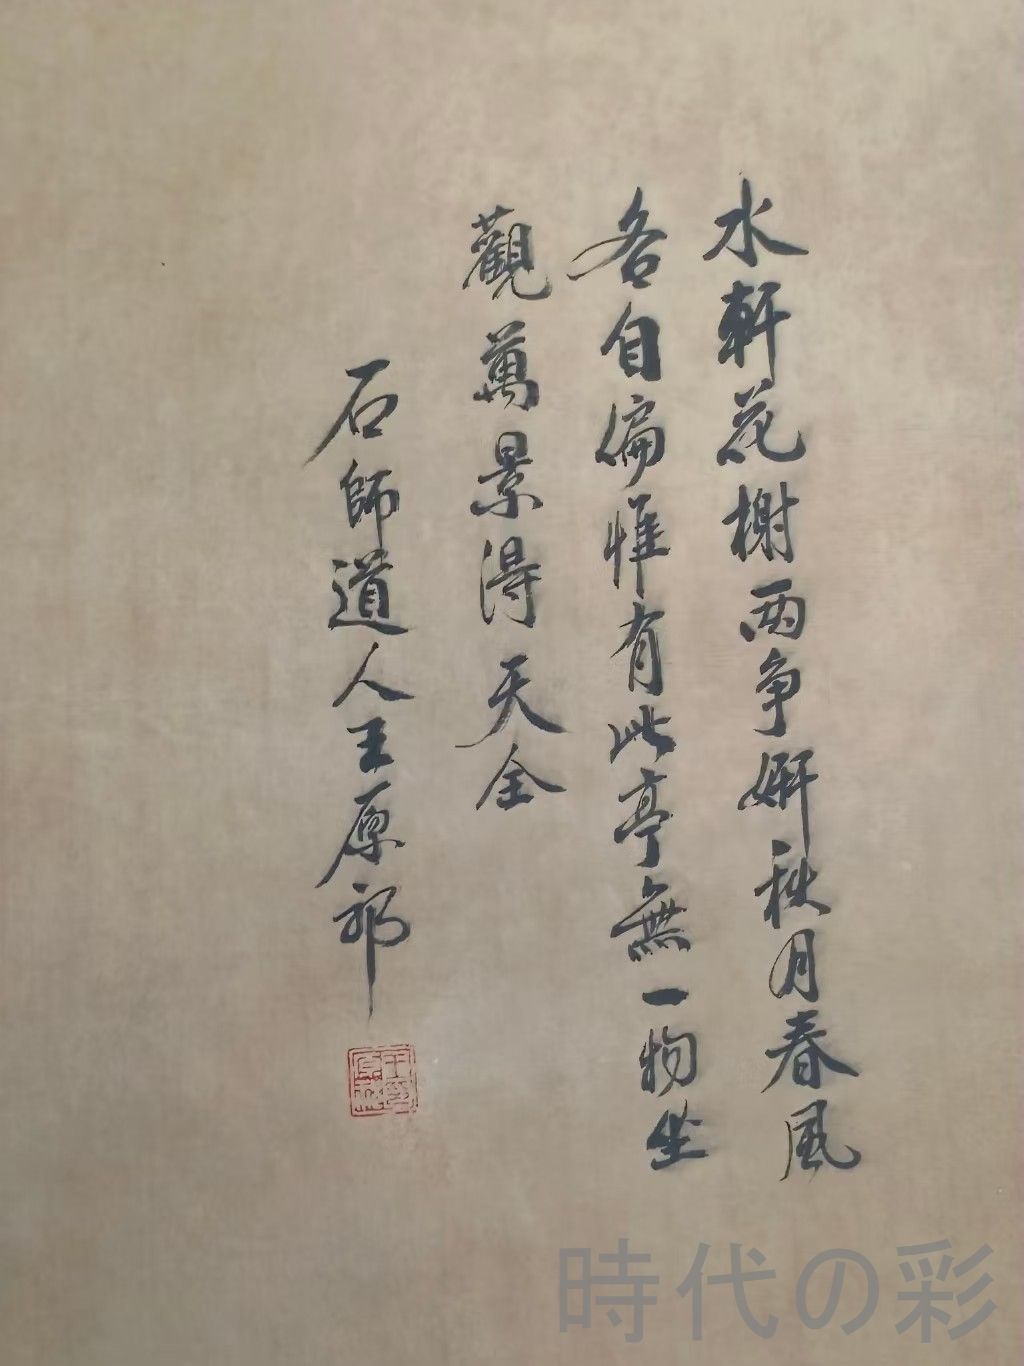 水軒花榭兩争妍秋月春風
各自偏惟有此亭無一物坐
觀萬景得天全
石師道人王原祁
時代の彩